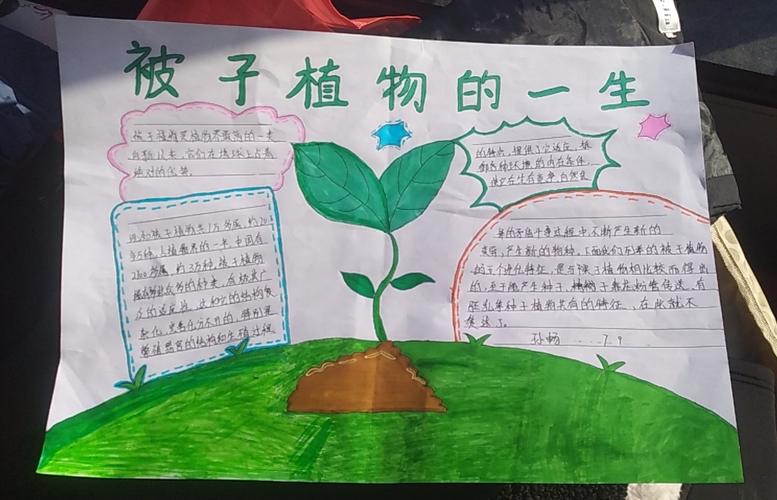 被子植物的一生
被子植物是植物界最高级的一类
自新生以来，它们在地球上占着
绝对的优势。
现知被子植物共1万多属，约20多
万种，占植物界的一半，中国有
2700多属，约3万种，被子植物
能有如此众多的种类，有极其广
泛的适应性，这和它的结构复
杂化、完善化分不开的，特别是
繁殖器官的结构和生殖过程
的特点，提供了它适应、抵
御各种环境的内在条件，
使它在生存竞争、自然选
择的矛盾斗争过程中，不断产生新的
变异，产生新的物种。下面我们列举的被子植物
的五个进化特征，是与裸子植物相比较而得出
的，至于能产生种子，精子靠花粉管传送，有
胚乳等种子植物共有的特征，在此就不
赘述了。
孙畅 7.9